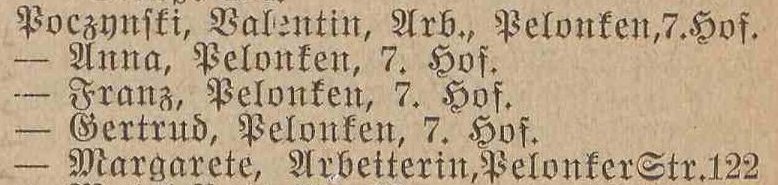 Poczynski, Valentin, Arb., Pelonken,7.Hof.
— Anna, Pelonken, 7. Hof.
— Franz, Pelonken, 7. Hof.
— Gertrud, Pelonken, 7. Hof.
— Margarete, Arbeiterin,PelonkerStr.122